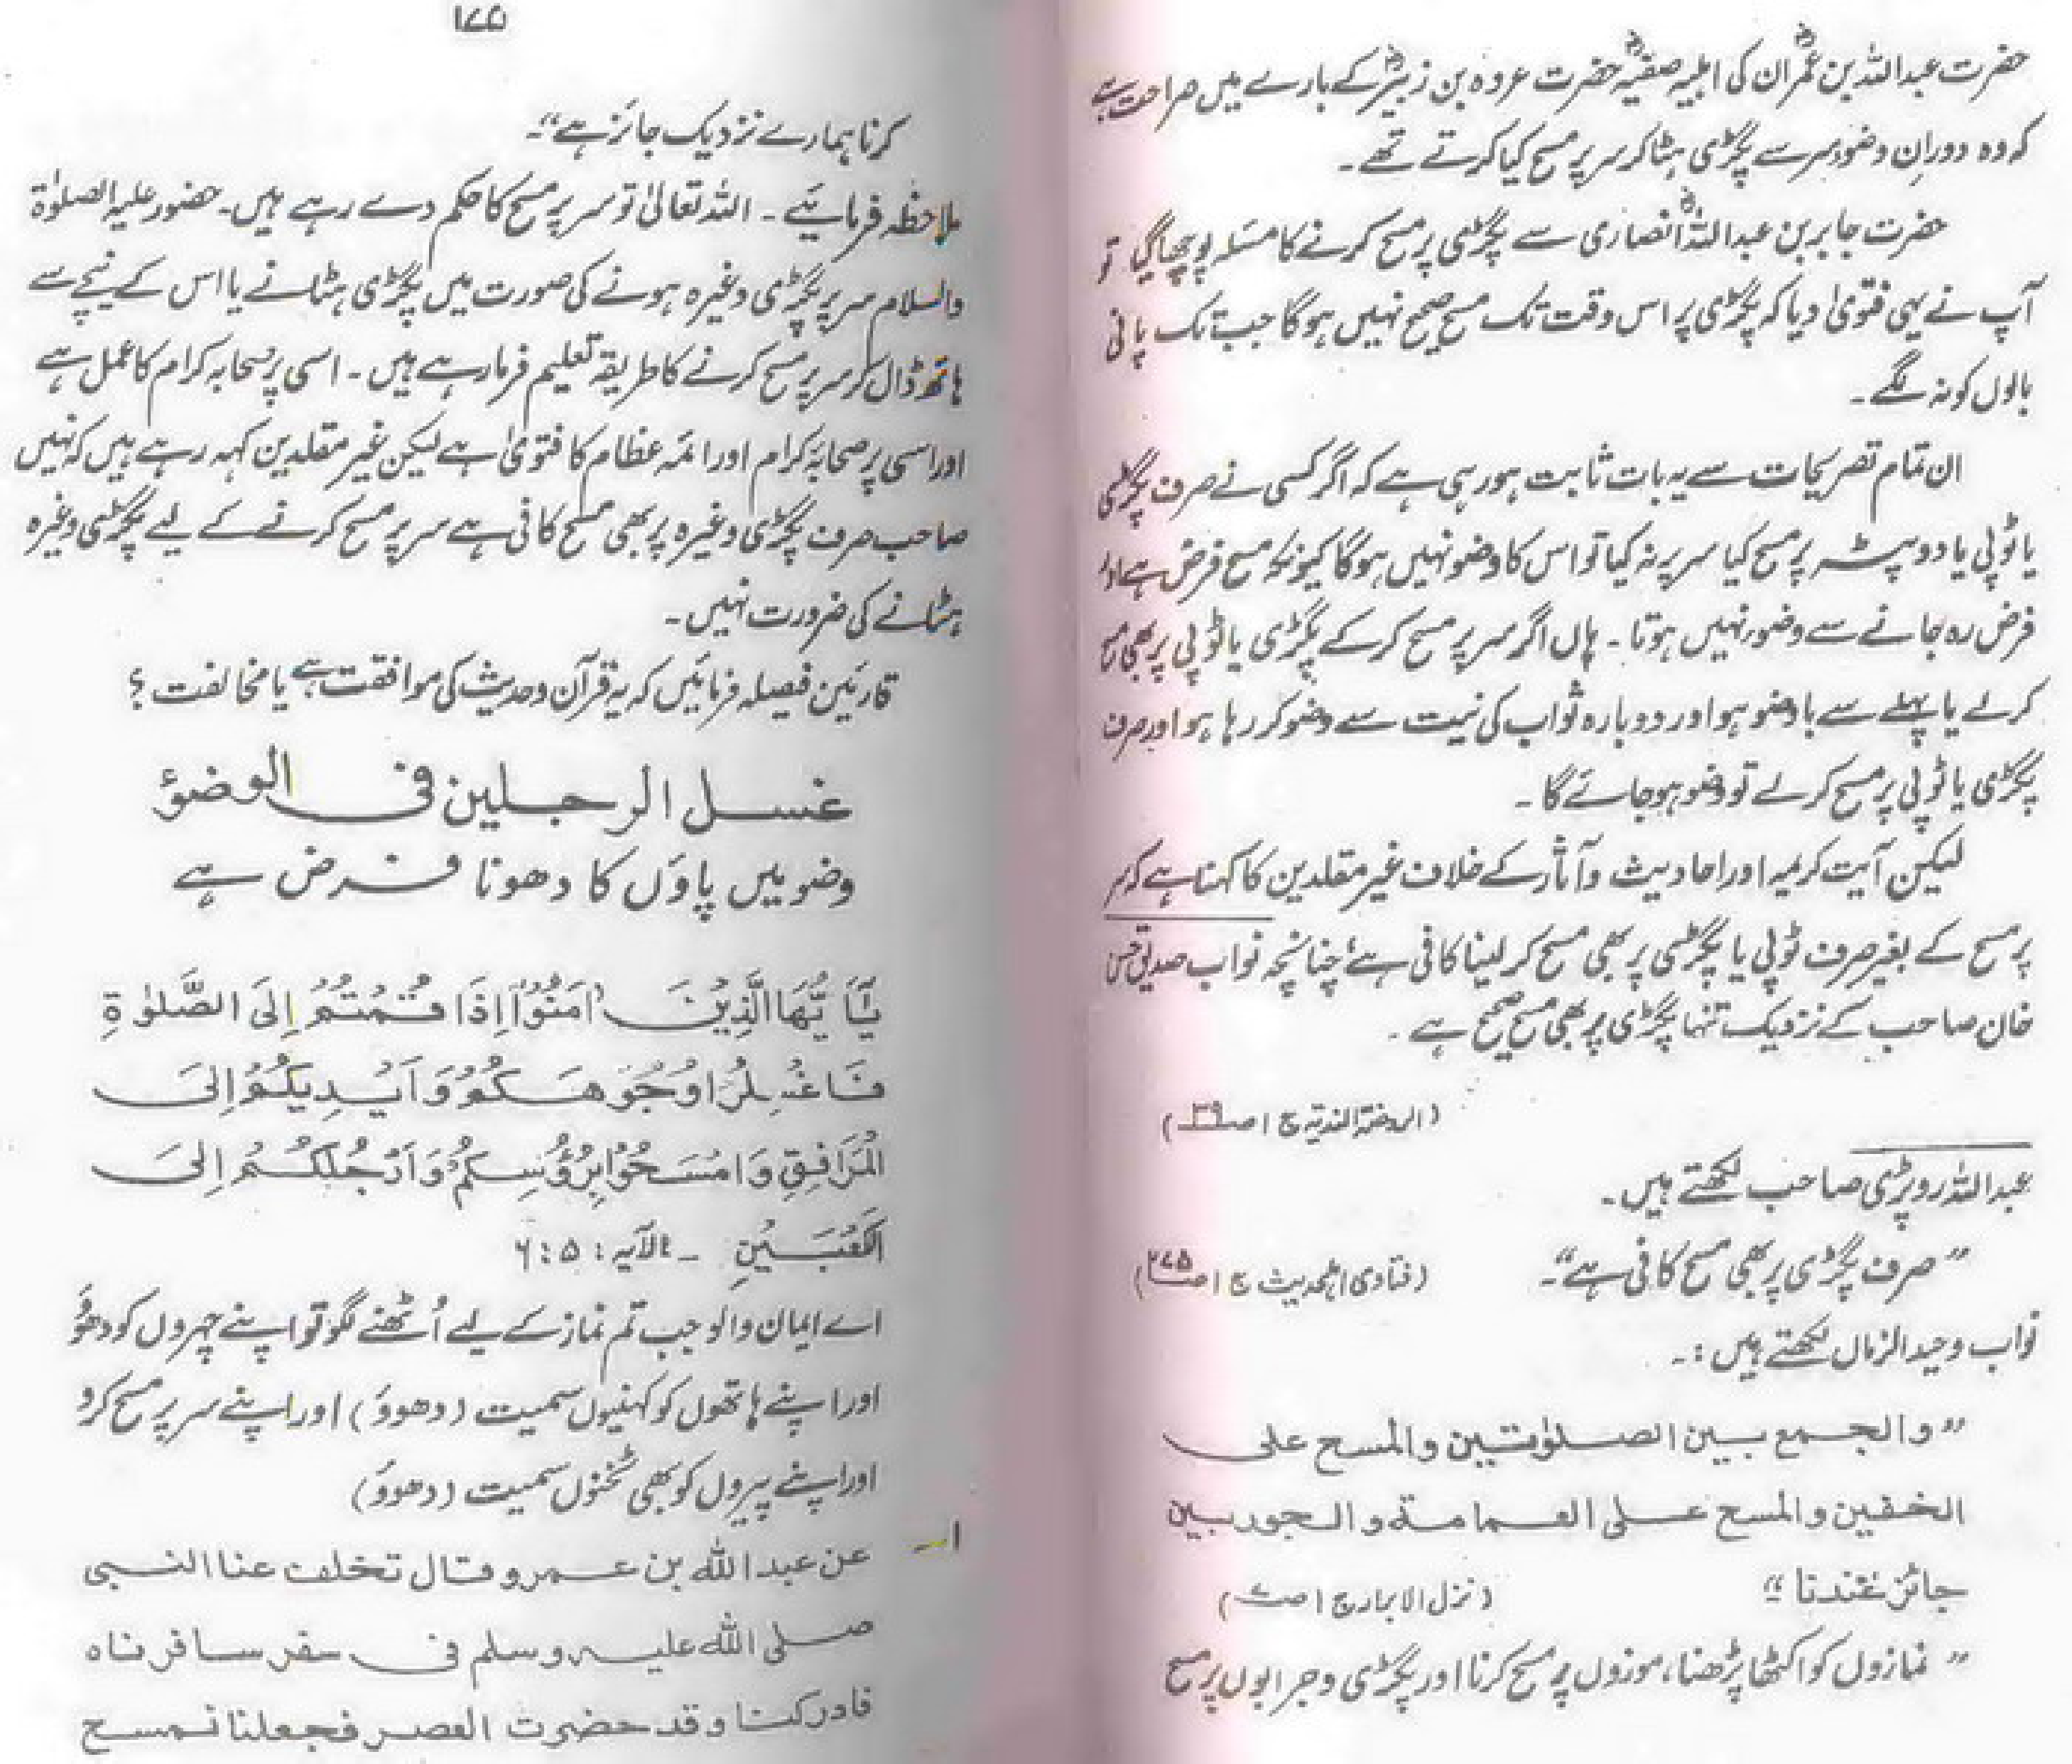 حضرت عبداللہ بن عمرؓ ان کی اہلیہ صفیہؓ حضرت عروہ بن زبیرؓ کے بارے میں صراحت ہے
کہ وہ دورانِ وضو سر سے پگڑی ہٹا کر سر پر مسح کیا کرتے تھے۔
حضرت جابر بن عبداللہؓ انصاری سے پگڑی پر مسح کرنے کا مسئلہ پوچھا گیا تو
آپ نے یہی فتویٰ دیا کہ پگڑی پر اس وقت تک مسح صحیح نہیں ہوگا جب تک پانی
بالوں کو نہ لگے۔
ان تمام تصریحات سے یہ بات ثابت ہو رہی ہے کہ اگر کسی نے صرف پگڑی
یا ٹوپی یا دوپٹہ پر مسح کیا سر پر نہ کیا تو اس کا وضو نہیں ہوگا کیونکہ مسح فرض ہے اور
فرض رہ جانے سے وضو نہیں ہوتا۔ ہاں اگر سر پر مسح کر کے پگڑی یا ٹوپی پر بھی مسح
کرلے یا پہلے سے با وضو ہو اور دوبارہ ثواب کی نیت سے وضو کر رہا ہو اور صرف
پگڑی یا ٹوپی پر مسح کرلے تو وضو ہوجائے گا۔
لیکن آیت کریمہ اور احادیث و آثار کے خلاف غیر مقلدین کا کہنا ہے کہ سر
پر مسح کے بغیر صرف ٹوپی یا پگڑی پر بھی مسح کر لینا کافی ہے، چنانچہ نواب صدیق حسن
خان صاحب کے نزدیک تنہا پگڑی پر بھی مسح صحیح ہے۔
(الروضۃ الندیہ ج ۱ صـ ۳۹)
عبداللہ روپڑی صاحب لکھتے ہیں۔
"صرف پگڑی پر بھی مسح کافی ہے"۔ (فتاوی اہلحدیث ج ۱ صـ ۲۷۵)
نواب وحید الزمان لکھتے ہیں:۔
"والجمع بین الصلوٰتین والمسح علی
الخفین والمسح علی العمامة والجوربین
جائز عندنا" (نزل الابرار ج ۱ صـ ۷)
"نمازوں کو اکٹھا پڑھنا، موزوں پر مسح کرنا اور پگڑی و جرابوں پر مسح
۱۷۵
کرنا ہمارے نزدیک جائز ہے"۔
ملاحظہ فرمائیے۔ اللہ تعالیٰ تو سر پر مسح کا حکم دے رہے ہیں۔ حضور علیہ الصلوٰۃ
والسلام سر پر پگڑی وغیرہ ہونے کی صورت میں پگڑی ہٹانے یا اس کے نیچے سے
ہاتھ ڈال کر سر پر مسح کرنے کا طریقہ تعلیم فرما رہے ہیں۔ اسی پر صحابہ کرام کا عمل ہے
اور اسی پر صحابہ کرام اور ائمہ عظام کا فتویٰ ہے لیکن غیر مقلدین کہہ رہے ہیں کہ نہیں
صاحب صرف پگڑی وغیرہ پر بھی مسح کافی ہے سر پر مسح کرنے کے لیے پگڑی وغیرہ
ہٹانے کی ضرورت نہیں۔
قارئین فیصلہ فرمائیں کہ یہ قرآن و حدیث کی موافقت ہے یا مخالفت؟
غسل الرجلین فی الوضوٴ
وضو میں پاؤں کا دھونا فرض ہے
یٰٓاَ یُّهَا الَّذِیْنَ اٰمَنُوْٓا اِذَا قُمْتُمْ اِلَی الصَّلٰوةِ
فَاغْسِلُوْا وُجُوْهَکُمْ وَاَیْدِیَکُمْ اِلَی
الْمَرَافِقِ وَامْسَحُوْا بِرُؤُسِکُمْ وَاَرْجُلَکُمْ اِلَی
الْکَعْبَیْنِ ۔ الآیہ : ۵ : ۶
اے ایمان والو جب تم نماز کے لیے اُٹھنے لگو تو اپنے چہروں کو دھوؤ
اور اپنے ہاتھوں کو کہنیوں سمیت (دھوؤ) اور اپنے سر پر مسح کرو
اور اپنے پیروں کو بھی ٹخنوں سمیت (دھوؤ)
۱۔ عن عبداللہ بن عمرو قال تخلف عنا النبی
صلی اللہ علیہ وسلم فی سفر سافرناہ
فادرکنا وقد حضرت العصر فجعلنا نمسح